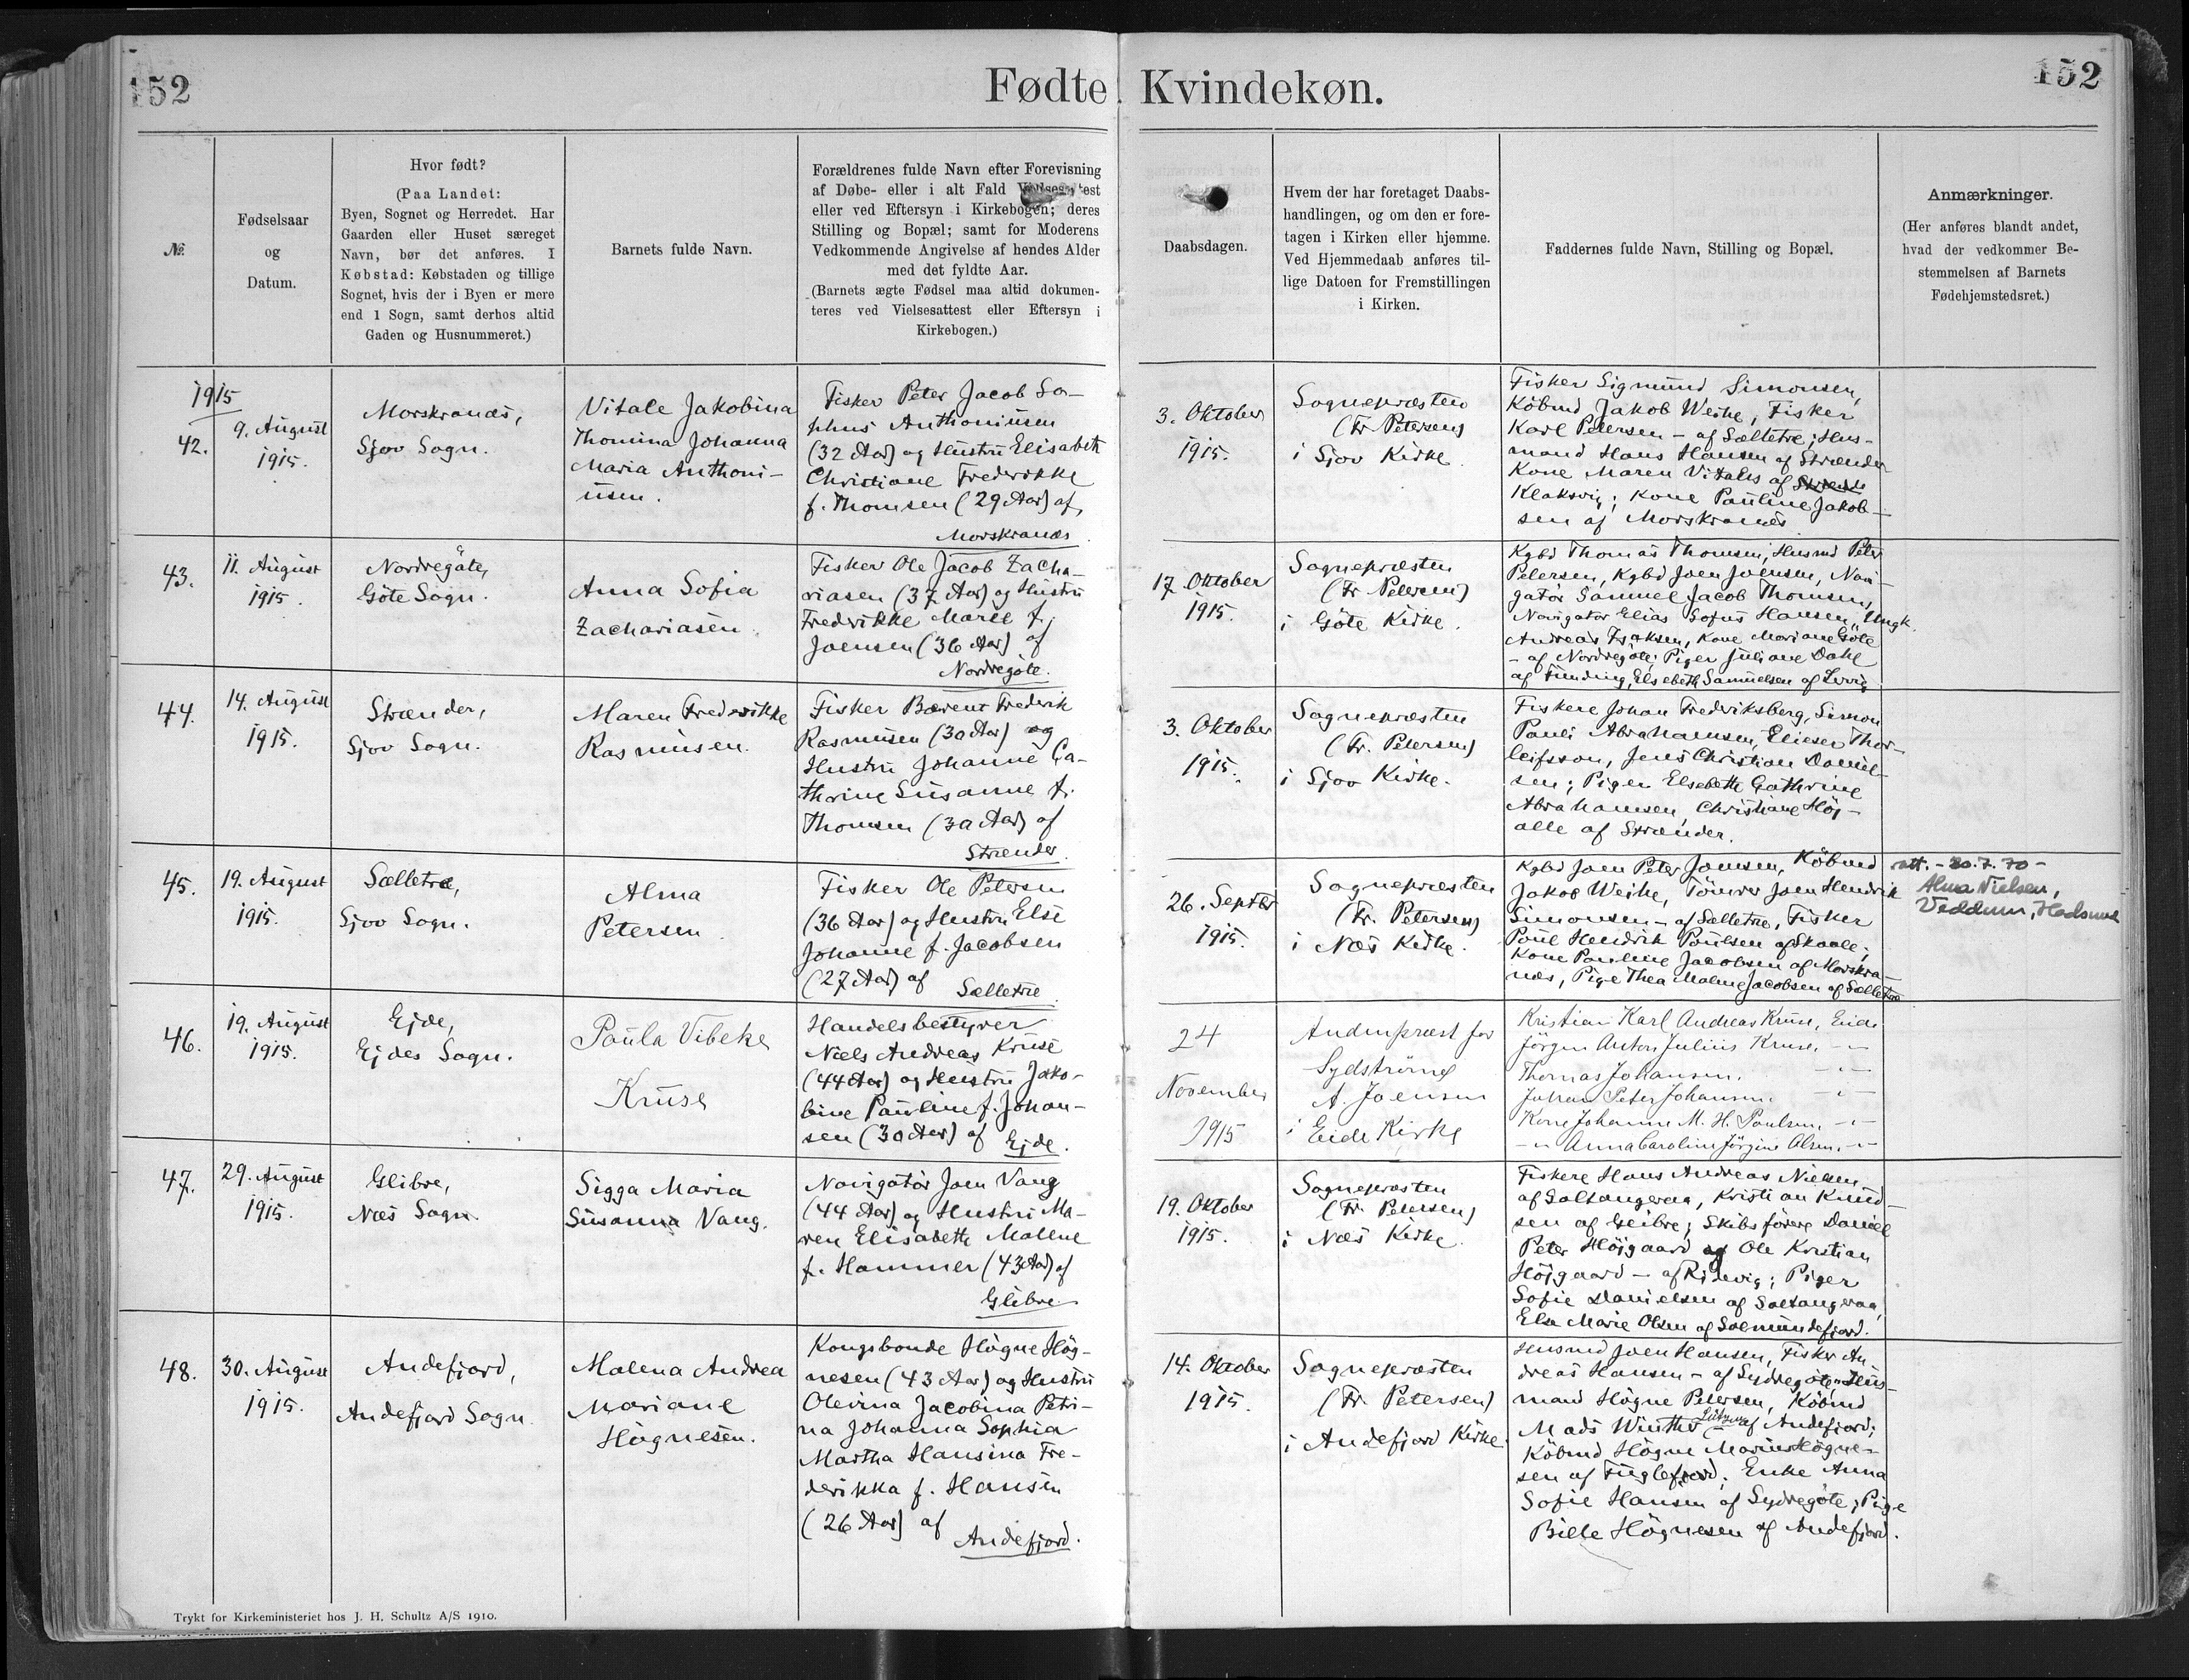 152
Fødte Kvindekøn.
152
№.
Fødselsaar
og
Datum.
Hvor født?
(Paa Landet:
Byen, Sognet og Herredet. Har
Gaarden eller Huset særeget
Navn, bør det anføres. I
Købstad: Købstaden og tillige
Sognet, hvis der i Byen er mere
end 1 Sogn, samt derhos altid
Gaden og Husnummeret.)
Barnets fulde Navn.
Forældrenes fulde Navn efter Forevisning
af Døbe- eller i alt Fald
eller ved Eftersyn i Kirkebogen; deres
Stilling og Bopæl; samt for Moderens
Vedkommende Angivelse af hendes Alder
med det fyldte Aar.
(Barnets ægte Fødsel maa altid dokumen-
teres ved Vielsesattest eller Eftersyn i
Kirkebogen.)
Daabsdagen.
Hvem der har foretaget Daabs-
handlingen, og om den er fore-
tagen i Kirken eller hjemme.
Ved Hjemmedaab anføres til-
lige Datoen for Fremstillingen
i Kirken.
Faddernes fulde Navn, Stilling og Bopæl.
Anmærkninger.
(Her anføres blandt andet,
hvad der vedkommer Be-
stemmelsen af Barnets
Fødehjemstedsret.)
1915
42.
9. August
1915.
Morskranæs,
Sjov Sogn.
Vitale Jakobina
Thomina Johanna
Maria Anthoni-
usen.
Fisker Peter Jacob So-
phus Anthoniusen
(32 Aar) og Hustru Elisabeth
Christiane Frederikke
f. Thomsen (29 Aar) af
Morskranæs
3. Oktober
1915.
Sognepræsten
(Fr. Petersen)
i Sjov Kirke.
Fisker Sigmund Simonsen,
Købmd Jakob Weihe, Fisker
Karl Petersen - af Sælletræ; Hus-
mand Hans Hansen af Strænder
Kone Maren Vitalis af
Klaksvig; Kone Pauline Jakob-
sen af Morskranæs
43.
11. August
1915.
Nordregöte,
Göte Sogn.
Anna Sofia
Zachariasen
Fisker Ole Jacob Zacha-
riasen (37 Aar) og Hustru
Frederikke Marie f.
Joensen (36 Aar) af
Nordregöte.
17. Oktober
1915.
Sognepræsten
(Fr. Petersen)
i Göte Kirke.
Kgbd Thomas Thomsen, Husmd Peter
Petersen, Kgbd Joen Joensen, Navi-
gatör Samuel Jacob Thomsen,
Navigatör Elias Sofus Hansen, Ungk.
Andreas Isaksen, Kone Mariane Göte
- af Nordregöte; Piger Juliane Dahl
af Funding, Elsebeth Samuelsen af
44.
14. August
1915.
Strænder,
Sjov Sogn.
Maren Frederikke
Rasmussen.
Fisker Bærent Frederik
Rasmussen (30 Aar) og
Hustru Johanne Ca-
thrine Susanne f.
Thomsen (30 Aar) af
Strænder.
3. Oktober
1915.
Sognepræsten
(Fr. Petersen)
i Sjov Kirke.
Fiskere Johan Frederiksberg, Simon
Pauli Abrahamsen, Elieser Thor-
leifsson, Jens Christian Daniel-
sen; Piger Elsebeth Cathrine
Abrahamsen, Christiane Höj-
alle af Strænder.
45.
19. August
1915.
Sælletræ,
Sjov Sogn.
Alma
Petersen
Fisker Ole Petersen
(36 Aar) og Hustru Else
Johanne f. Jacobsen
(27 Aar) af
Sælletræ
26. Septbr
1915.
Sognepræsten
(Fr. Petersen)
i Næs Kirke.
Kgbd Joen Peter Joensen, Købmd
Jakob Weihe, Tömrer Joen Hendrik
Simonsen - af Sælletræ, Fisker
Poul Hendrik Poulsen af Skaale;
Kone Pauline Jacobsen af Morskra-
næs, Pige Thea Malene Jacobsen af Sælletræ
att. - 20.7.70 -
Alma Nielsen,
Veddum, Hadsund
46.
19. August
1915.
Ejde,
Ejdes Sogn.
Paula Vibeke
Kruse
Handelsbestyrer
Niels Andreas Kruse
(44 Aar) og Hustru Jako-
bine Pauline f. Johan-
sen (30 Aar) af Ejde.
24
November
1915
Andenpræst for
Sydströmö
A. Joensen
i Eide Kirke
Kristian Karl Andreas Kruse, Eide
Jörgen Anton Julius Kruse. -"-
Thomas Johansen. -"-
Johan Peter Johansen. -"-
Kone Johanne M. H. Poulsen. -"-
-"- Anna Caroline Jörgine Olsen. -"-
47.
29. August
1915.
Glibre,
Næs Sogn.
Sigga Maria
Susanna Vang.
Navigatör Joen Vang
(44 Aar) og Hustru Ma-
ren Elisabeth Malene
f. Hammer (43 Aar) af
Glibre
19. Oktober
1915.
Sognepræsten
(Fr. Petersen)
i Næs Kirke.
Fiskere Hans Andreas Nielsen
af Saltangeraa, Kristian Knud-
sen af Glibre; Skibsförere Daniel
Peter Höjgaard og Ole Kristian
Höjgaard - af Ridevig; Piger
Sofie Danielsen af Saltangeraa,
Else Marie Olsen af Solmundefjord.
48.
30. August
1915.
Andefjord,
Andefjord Sogn.
Malena Andrea
Mariane
Högnesen.
Kongsbonde Högne Hög-
nesen (43 Aar) og Hustru
Olevina Jacobina Petri-
na Johanna Sophia
Martha Hansina Fre-
derikka f. Hansen
(26 Aar) af
Andefjord.
14. Oktober
1915.
Sognepræsten
(Fr. Petersen)
i Andefjord Kirke.
Husmd Joen Hansen, Fisker An-
dreas Hansen - af Sydregöte, Hus-
mand Högne Petersen, Købmd
Mads Winther Lützen af Andefjord;
Købmd Högne Marius Högne-
sen af Fuglefjord; Enke Anna
Sofie Hansen af Sydregöte; Pige
Bille Högnesen af Andefjord.
Trykt for Kirkeministeriet hos J. H. Schultz A/S 1910.